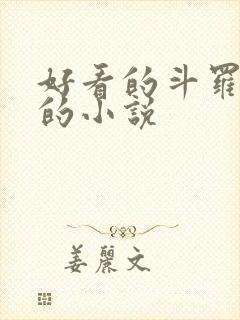 好看的斗羅
的小説
姜麗文